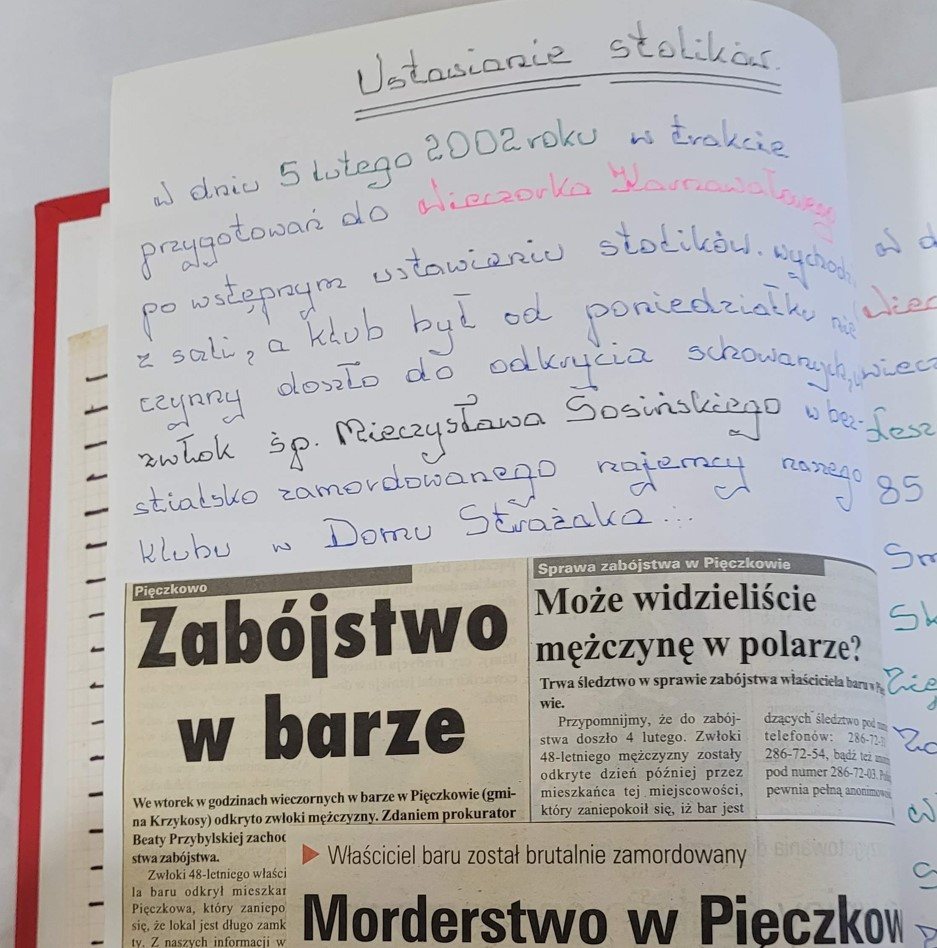 Ustawianie stolików.
W dniu 5 lutego 2002 roku w trakcie
przygotowań do Wieczorka Karnawałowego
po wstępnym ustawieniu stolików. wychodz
z sali, a klub był od poniedziałku nie
czynny doszło do odkrycia schowanych,
zwłok śp. Mieczysława Sosińskiego w bez-
stialsko zamordowanego najemcy naszego
klubu w Domu Strażaka...
Pięczkowo
Zabójstwo
w barze
We wtorek w godzinach wieczornych w barze w Pięczkowie (gmi-
na Krzykosy) odkryto zwłoki mężczyzny. Zdaniem prokurator
Beaty Przybylskiej zachod
stwa zabójstwa.
Zwłoki 48-letniego właści
la baru odkrył mieszkań
Pięczkowa, który zaniepo
się, że lokal jest długo zamk
ty. Z naszych informacji w
Sprawa zabójstwa w Pięczkowie
Może widzieliście
mężczynę w polarze?
Trwa śledztwo w sprawie zabójstwa właściciela baru w Pię
wie.
Przypomnijmy, że do zabój-
stwa doszło 4 lutego. Zwłoki
48-letniego mężczyzny zostały
odkryte dzień później przez
mieszkańca tej miejscowości,
który zaniepokoił się, iż bar jest
dzących śledztwo pod
telefonów: 286-72-
286-72-54, bądź też
pod numer 286-72-03.
pewnia pełną anonimowość
Właściciel baru został brutalnie zamordowany
Morderstwo w Pięczkow
85